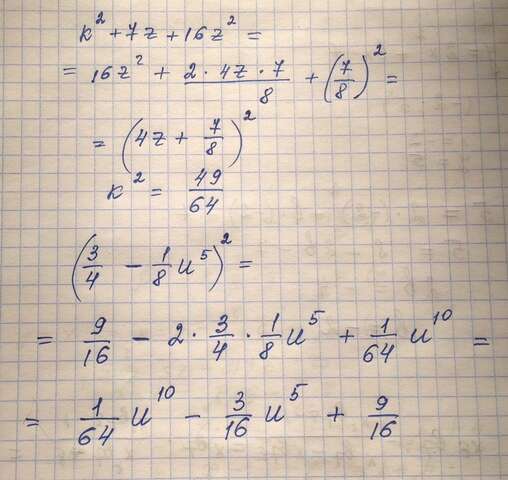 k² + 7z + 16z² =
= 16z² + 2·4z·7/8 + (7/8)² =
= (4z + 7/8)²
k² = 49/64
(3/4 - 1/8 u⁵)² =
= 9/16 - 2·3/4·1/8 u⁵ + 1/64 u¹⁰ =
= 1/64 u¹⁰ - 3/16 u⁵ + 9/16